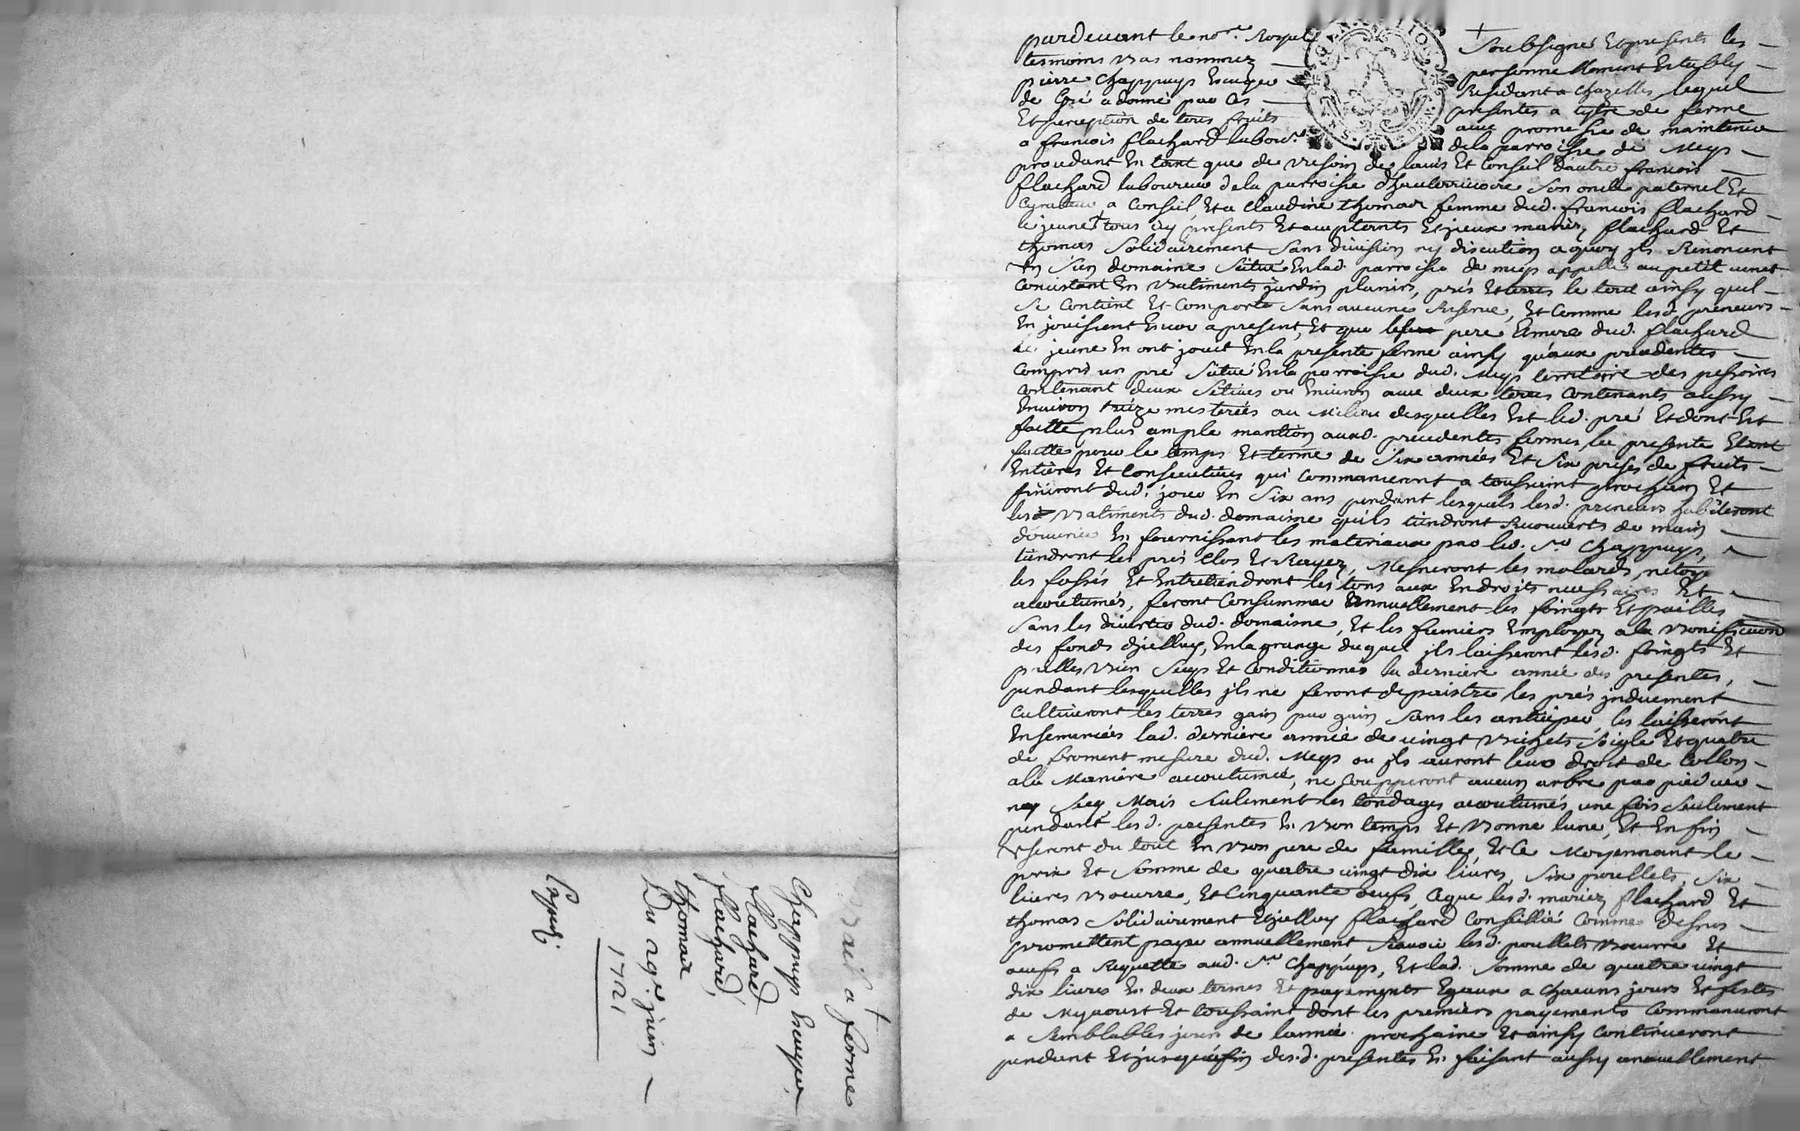 pardevant le no.re Royal Soubsigné Et presents les
tesmoins bas nommez personnellement Estably
pierre Chappuys Residant a Chazelles lequel
de Gré a donné par ces presentes a tiltre de ferme
Et perception de tous fruits avec promesse de maintenir
a françois flachard labour.r de la parroisse de Meys
procedant En tant que de besoin de lauis Et Conseil dautre françois
flachard laboureur dela parroisse dhauterivoire Son oncle paternel Et
Curateur a Conseil, Et a Claudine thomas femme dud. françois flachard
le jeune tous icy presents Et acceptants Et jceux mariez flachard Et
thomas Solidairement Sans division ny discution a quoy jls Renoncent
Un Sien domaine Scitué En lad. parroisse de meys appellé au petit
Concistant En batiments jardin, prés Et terres le tout ainsy quil
Se Contient Et Comporte Sans aucune Reserve, Et Comme lesd. preneurs
En jouissent Encor a present, Et que pere Et mere dud. flachard
le jeune En ont jouit En la presente ferme ainsy quaux precedentes
Compris un pré Scitué En la parroisse dud. Meys territoire des
Contenant deux ou Environ avec deux terres Contenants aussy
Environ mesterées au Milieu desquelles Est led. pré Et dont Est
faitte plus ample mantion auxd. precedentes fermes la presente Etant
faitte pour le temps Et terme de Six années Et Six prises de fruits
Entieres Et Consecutives qui Commanceront a toussaint prochain Et
finiront dud. jour En Six ans pendant lesquels lesd. preneurs habiteront
les batiments dud. domaine quils tiendront Recouverts de main
En fournissant les materiaux par led. S.r Chappuys,
tiendront les prés Clos Et les molards,
les fossés, Et Entretiendront les aux Endroits necessaires Et
acoutumés, feront Consummer Annuellement les foingts Et pailles
Sans les divertir dud. domaine, Et les fumiers Employez a la bonification
des fonds djcelluy, En la grange duquel jls laisseront lesd. foingts Et
pailles bien Et Conditionnés la derniere année des presentes,
pendant lesquelles jls ne feront depaistre les prés jnduement
Cultiveront les terres gain par gain Sans les anticiper, les laisseront
Ensemancées lad. derniere année de vingt bichets Soigle Et quatre
de froment mesure dud. Meys ou jls auront leur droit de Collon
a la Maniere acoutumée, ne Coupperont aucun arbre par pied
ny Secq Mais Seulement les tondages acoutumés, une fois Seulement
pendant lesd. presentes En bon temps Et bonne lune, Et En fin
Useront du tout En bon pere de famille, Et Ce Moyennant le
prix Et Somme de quatre vingt dix livres, Six poullets, Six
livres beurre, Et Cinquante oeufs, Que lesd. mariez flachard Et
thomas Solidairement Et jcelluy flachard Conseillié Comme desus
promettent payer annuellement Scavoir lesd. poullets beurre Et
oeufs a Requette aud. S.r Chappuys, Et lad. Somme de quatre vingt
dix livres En deux termes Et payements Egaux a Chacuns jours Et festes
de Myaoust Et toussaint dont les premiers payements Commanceront
a Semblables jours de lannée prochaine Et ainsy Continueront
pendant Et jusques a fin desd. presentes En faisant aussy annuellement
Bail a ferme
Chappuys
flachard
flachard,
thomas
Du 29.e juin
1721